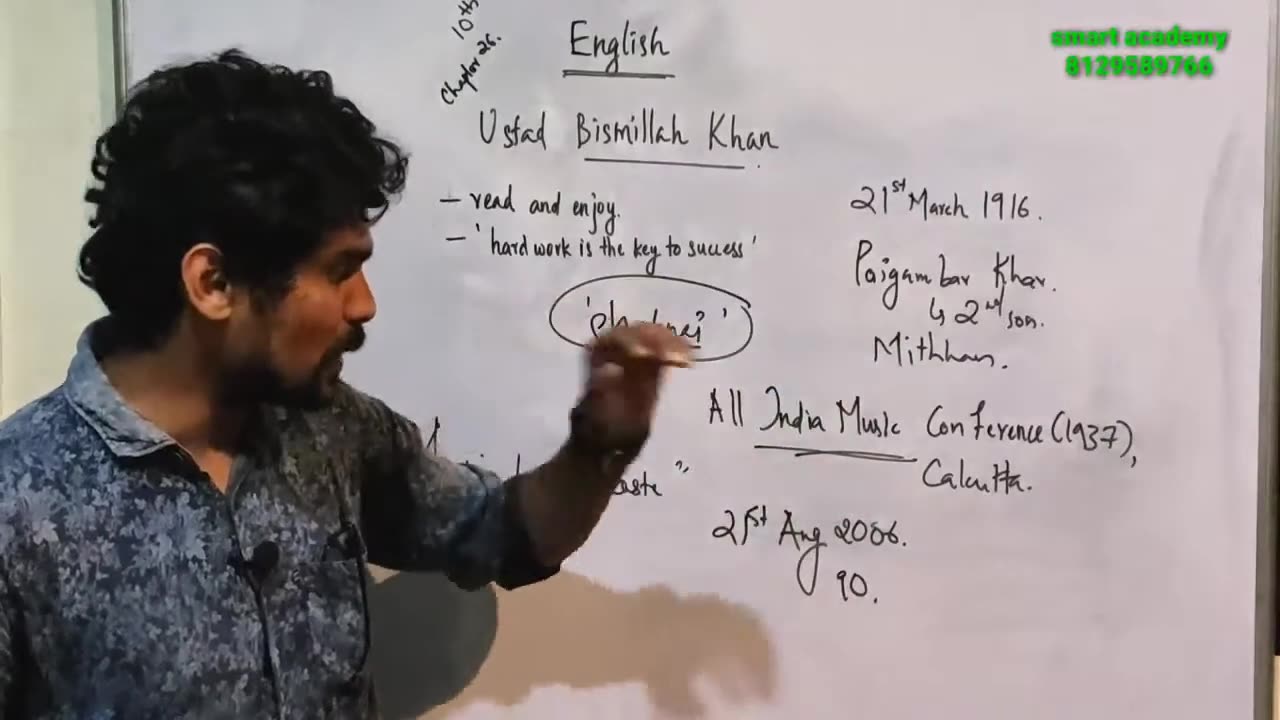 10th
Chapter 26.
English
Ustad Bismillah Khan
– read and enjoy.
– 'hard work is the key to success'
21st March 1916.
Paigambar Khan.
↳ 2nd son.
Mithhan.
All India Music Conference (1937),
Calcutta.
21st Aug 2006.
90.
smart academy
8129589766